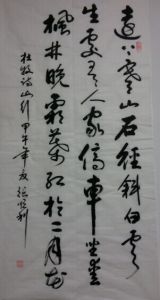 遠上寒山石徑斜白雲
生處有人家停車坐愛
楓林晚霜葉紅於二月花
杜牧詩山行 甲午年 張 利